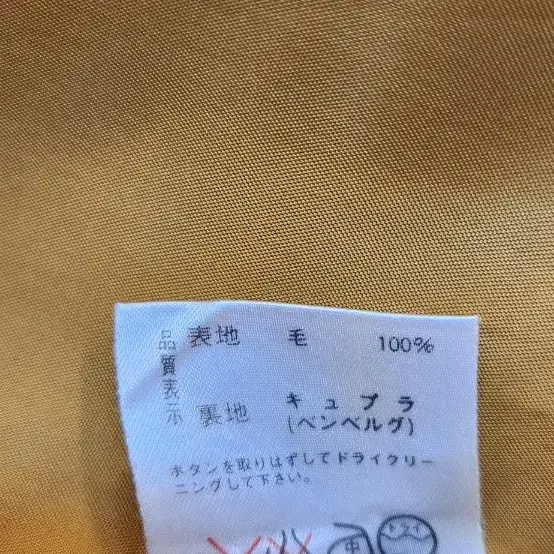 品質表示
表地 毛 100%
裏地 キュプラ
(ベンベルグ)
ボタンを取りはずしてドライクリー
ニングして下さい。
ドライ